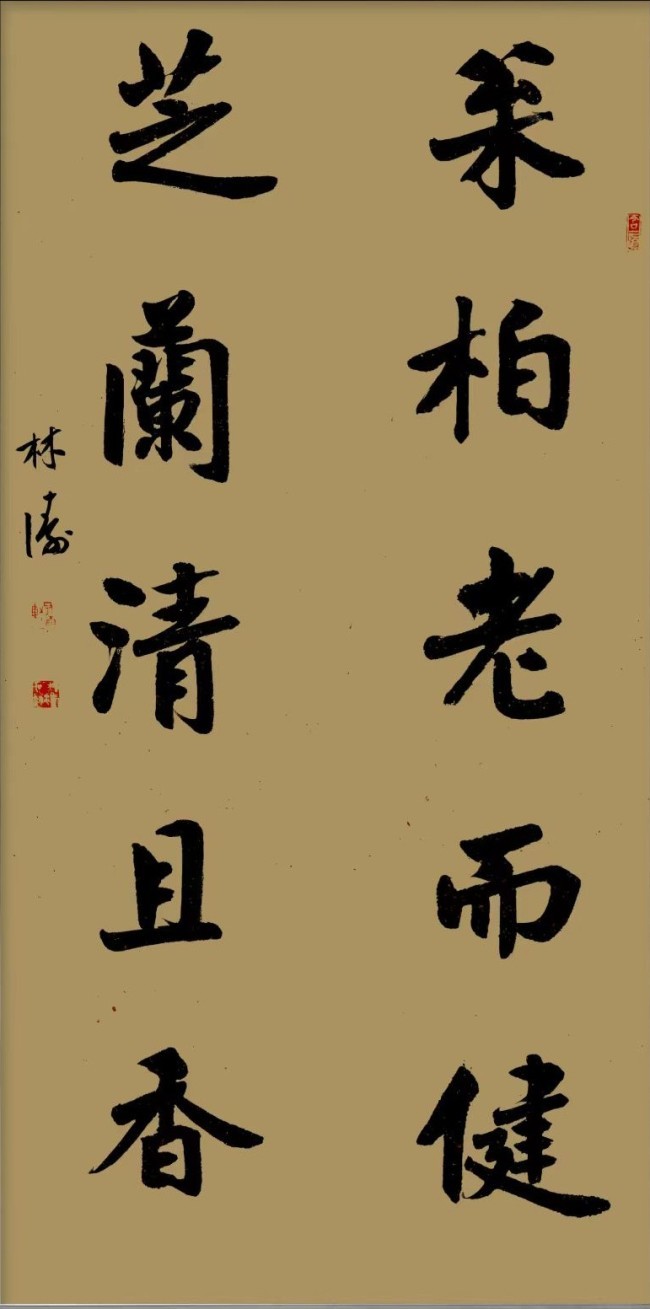 枀柏老而健
芝蘭清且香
林濤